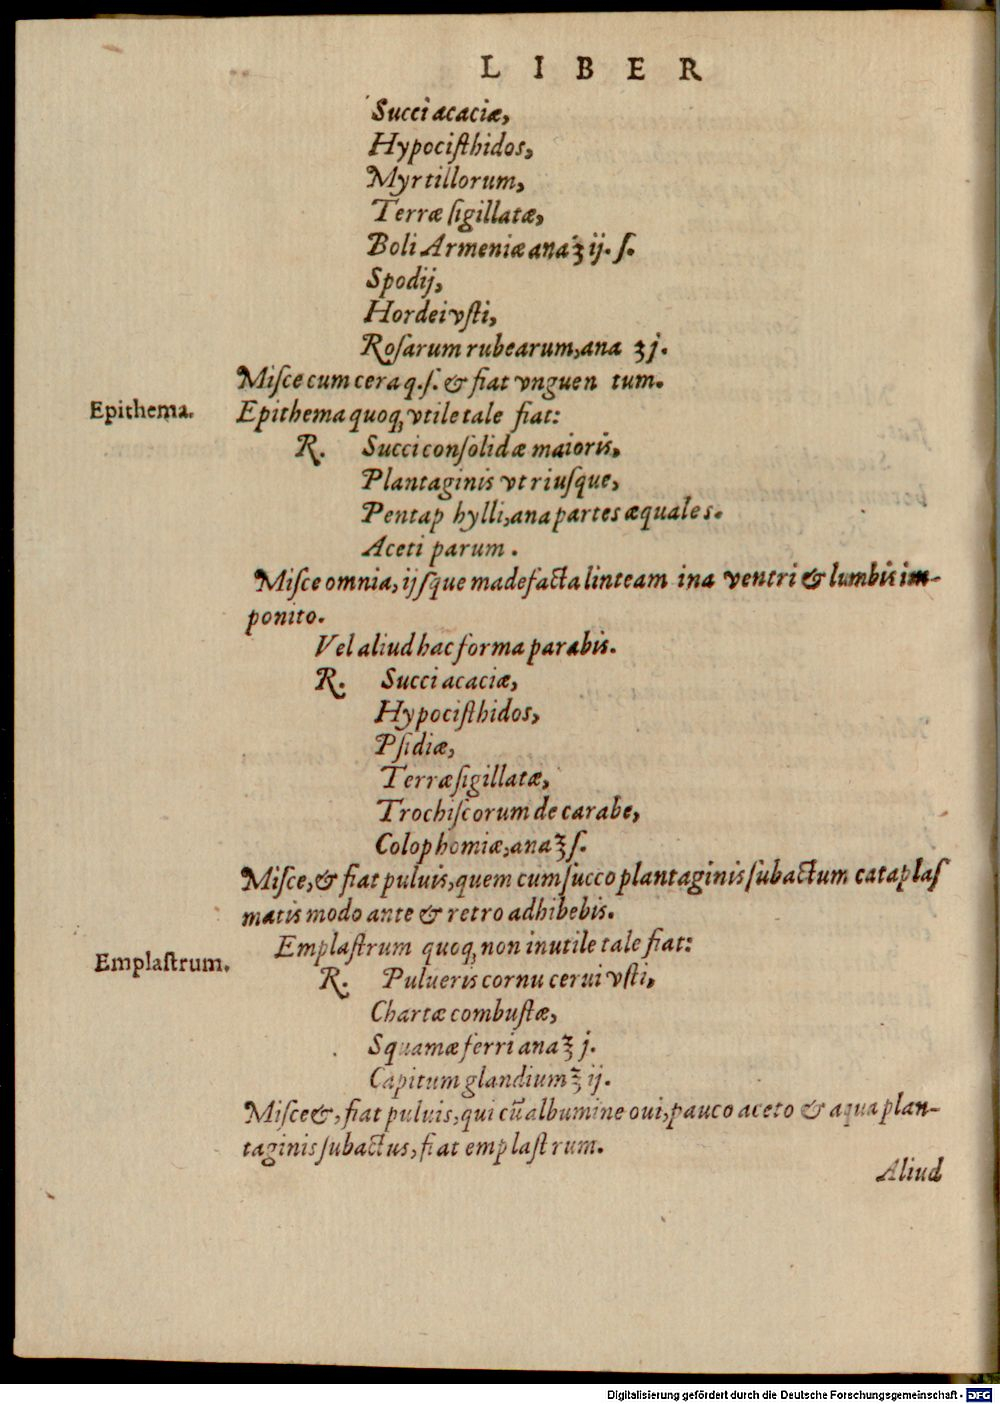 LIBER
Succi acaciæ,
Hypociſthidos,
Myrtillorum,
Terræ ſigillatæ,
Boli Armeniæ ana ʒ ij. ſ.
Spodij,
Hordei vſti,
Roſarum rubearum, ana ʒ j.
Miſce cum cera q.ſ. & fiat vnguen tum.
Epithema.
Epithema quoq; vtile tale fiat:
R. Succi conſolidæ maioris,
Plantaginis vtriuſque,
Pentap hylli, ana partes æquales.
Aceti parum.
Miſce omnia, ijſque madefacta linteam ina ventri & lumbis im-
ponito.
Vel aliud hac forma parabis.
R. Succi acaciæ,
Hypociſthidos,
Pſidiæ,
Terræ ſigillatæ,
Trochiſcorum de carabe,
Colophomiæ, ana ʒ ſ.
Miſce, & fiat puluis, quem cum ſucco plantaginis ſubactum cataplaſ
matis modo ante & retro adhibebis.
Emplaſtrum quoq; non inutile tale fiat:
Emplaſtrum.
R. Pulueris cornu cerui vſti,
Chartæ combuſtæ,
Squamæ ferri ana ʒ j.
Capitum glandium ʒ ij.
Miſce &, fiat puluis, qui cũ albumine oui, pauco aceto & aqua plan-
taginis ſubactus, fiat emplaſtrum.
Aliud
Digitalisierung gefördert durch die Deutsche Forschungsgemeinschaft - DFG